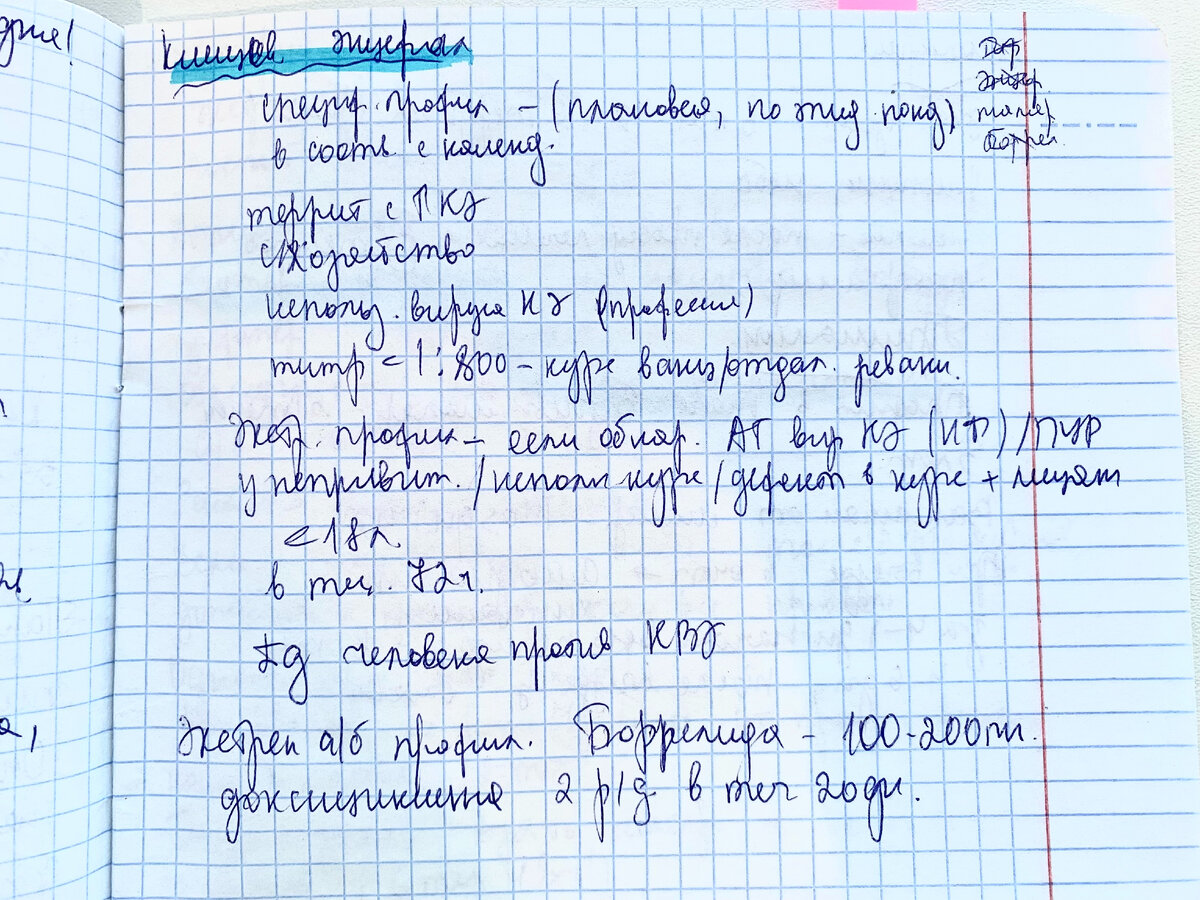 Клещев энцефал
специф. профил – (плановая, по эпид. показ)
в соотв. с календ.
террит с ПКЭ
с/хозяйство
использ. вируса КЭ (професси)
титр < 1:800 – курс вакц/отдал. ревакц.
Экстр. профил – если обнар. АГ вир КЭ (ИФ) / ПЦР
у непривит. / неполн курс / дефект в курсе + лицам
< 18 л.
в теч. 72 ч.
Ig человека против КВЭ
Экстрен а/б профил. Боррелиоза – 100-200 мг.
доксициклина 2 р/д в теч 20 дн.